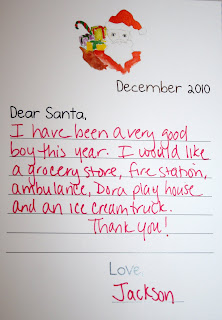 December 2010
Dear Santa,
I have been a very good
boy this year. I would like
a grocery store, fire station,
ambulance, Dora play house
and an ice cream truck.
Thank you!
Love,
Jackson